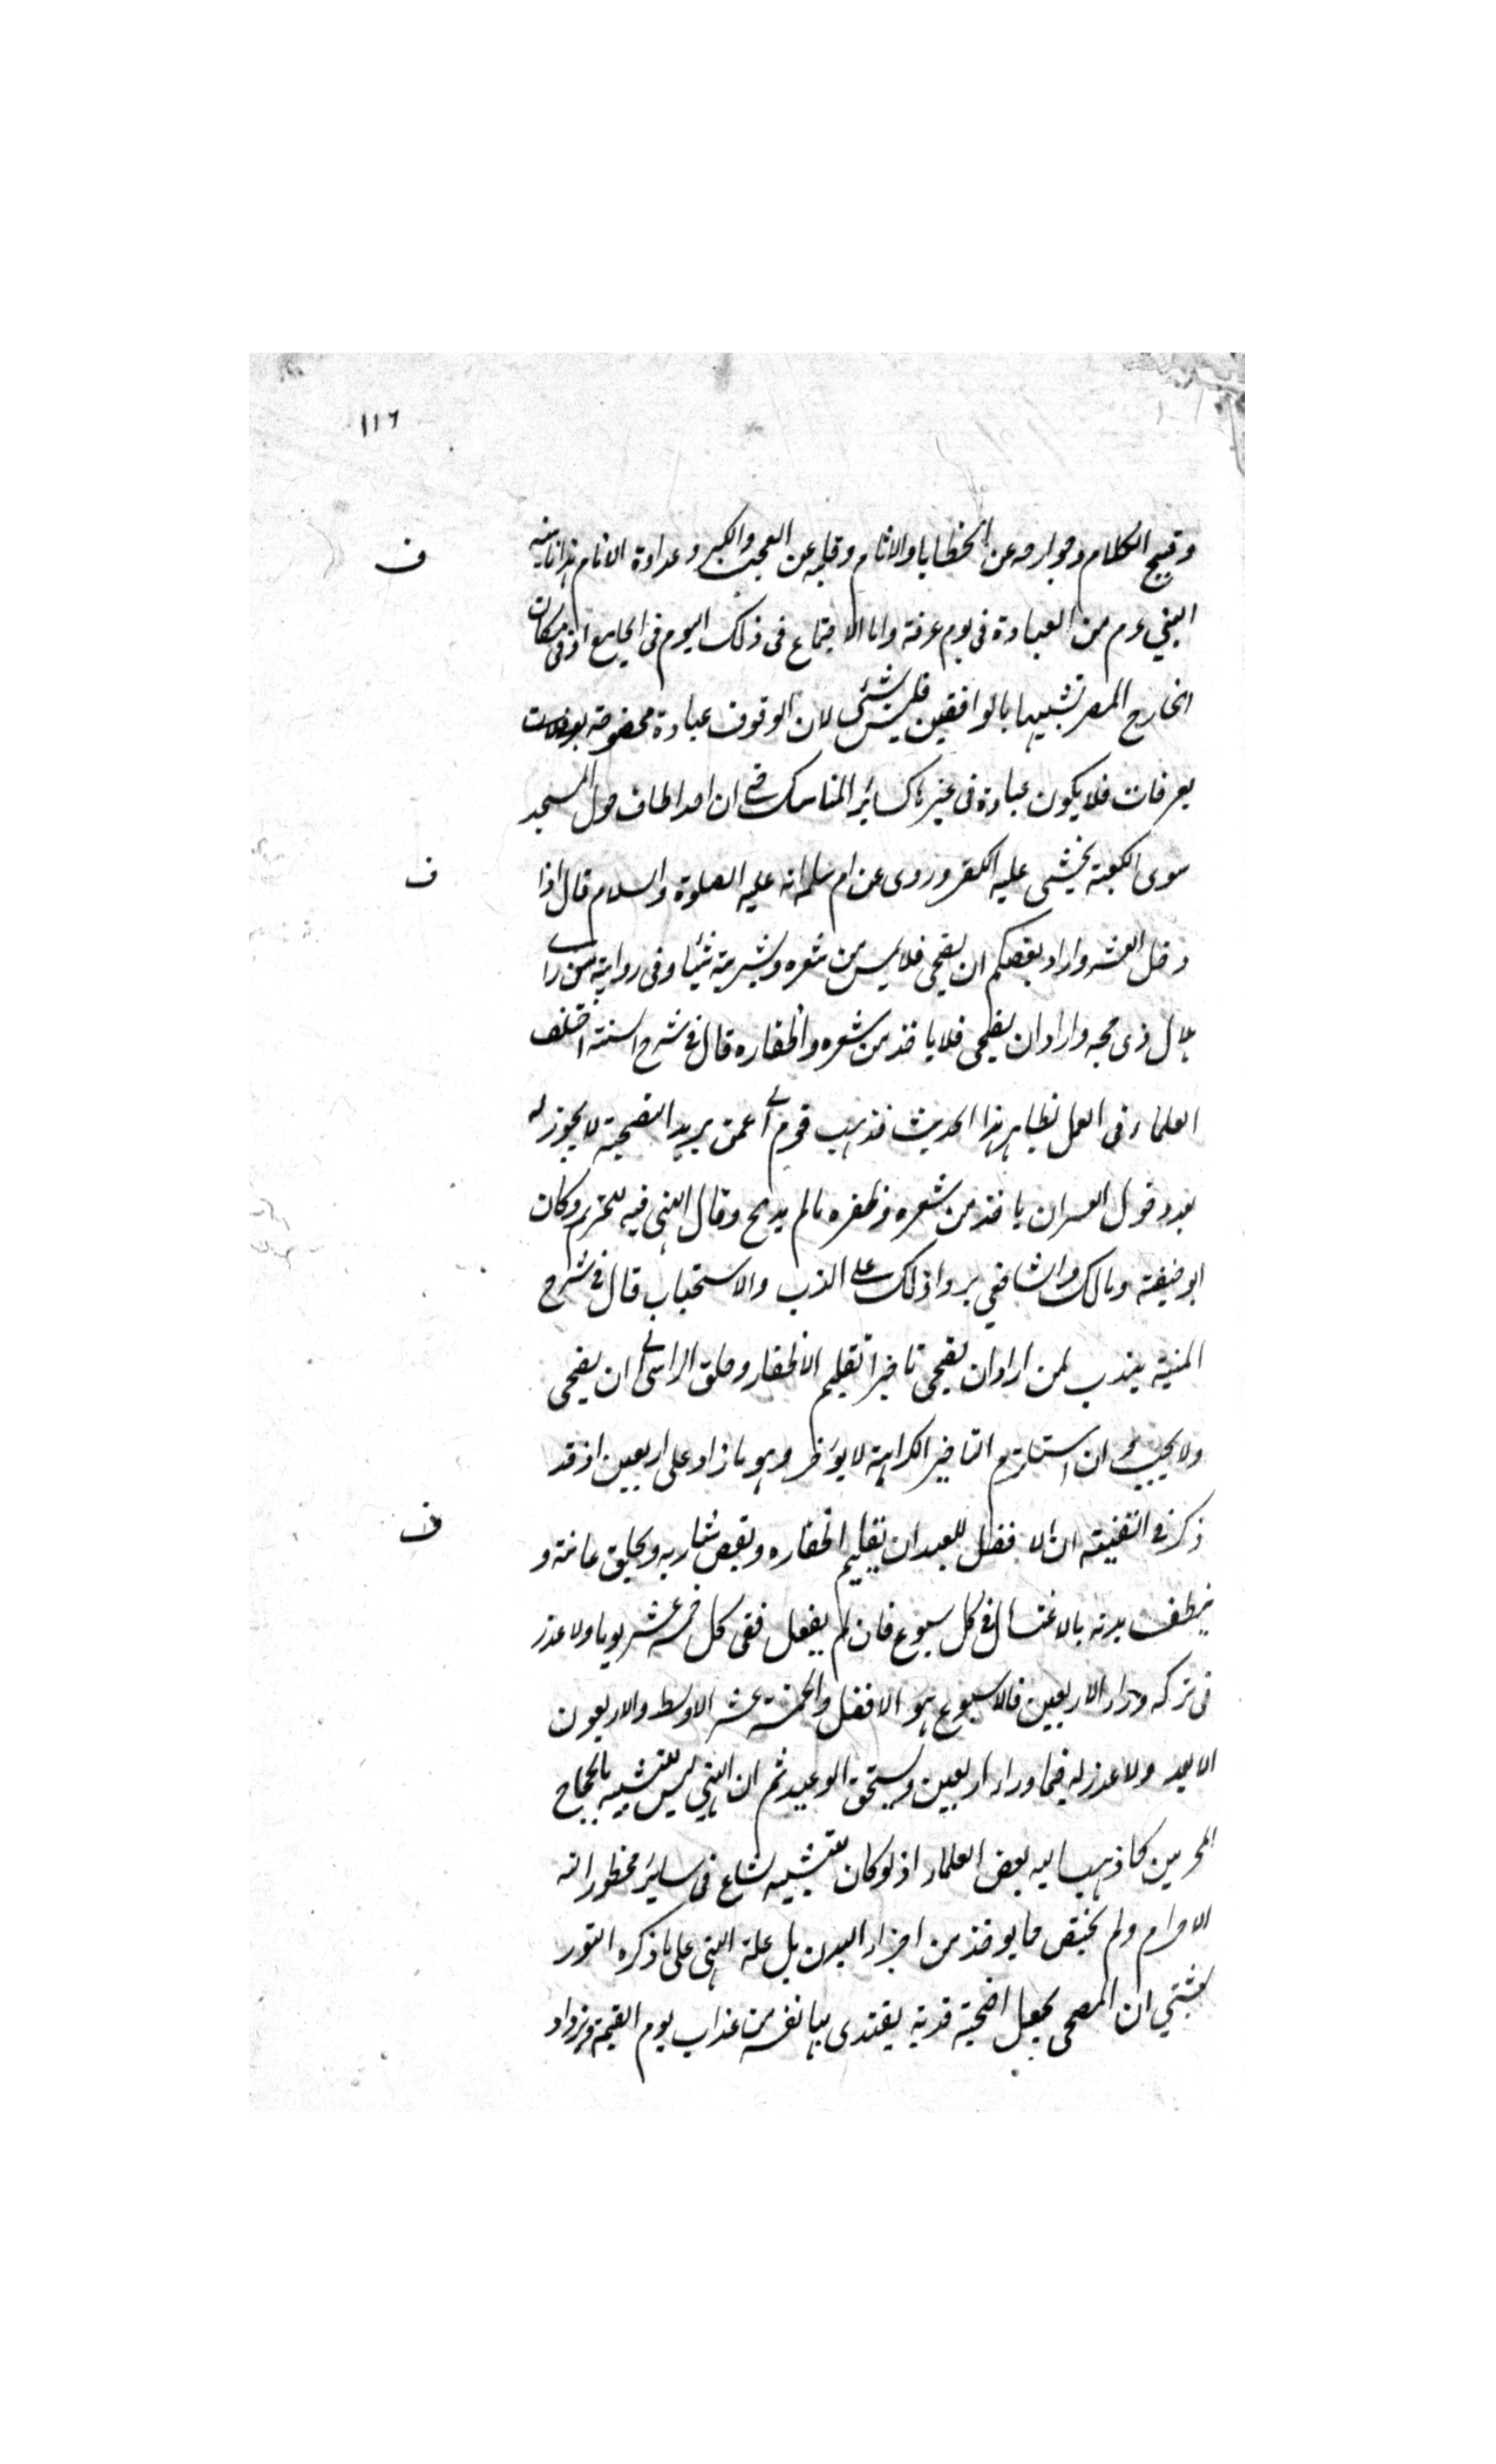 ١١٦
وقبيح الكلام وجوارحه عن الخطايا والاثام وقلبه عن العجب والكبر وعداوة الانام هذا ما
ف
النبي عم من العبادة فى يوم عرفة واما الاجتماع فى ذلك اليوم فى الجامع او فى مكان
الخارج المصر تشبيها بالواقفين فليس بشئ لان الوقوف عبادة مخصوصة
بعرفات فلا يكون عبادة فى غيرها كسائر المناسك حتى ان احد اطاف حول المسجد
سوى الكعبة يخشى عليه الكفر وروى عن ام سلمه انه عليه الصلوة والسلام قال اذا
ف
دخل العشر واراد بعضكم ان يضحى فلا يمس من شعره وبشرته شيئا وفى رواية من راى
هلال ذى حجه واراد ان يضحى فلا ياخذ من شعره واظفاره قال فى شرح السنة اختلف
العلماء فى العمل بظاهر هذا الحديث فذهب قوم الى عمن يريد التضحية لا يجوز له
بعد دخول العسر ان ياخذ من شعره وظفره مالم يذبح وقال النهى فيه للتحريم وكان
ابو حنيفة ومالك والشافعي يروا ذلك على الندب والاستحباب قال فى شرح
المنية يندب لمن اراد ان يضحى تاخير تقليم الاظفار وحلق الراس الى ان يضحى
ولا يجب وان استلزم التاخير الكراهة لا يؤخر وهو ما زاد على اربعين اذ قد
ذكر فى القنية ان الافضل للعبد ان يقليم اظفاره ويقص شاربه ويحلق عانته و
ف
ينظف بدنه بالاغتسال فى كل سبوع فان لم يفعل ففى كل خمسة عشر يوما ولا عذر
فى تركه وراء الاربعين فالاسبوع هو الافضل والخمسة عشر الاوسط والاربعون
الابعد ولا عذر له فيما وراء اربعين ويستحق الوعيد ثم ان النهي ليس للتشبيه بالحجاج
المحرمين كما ذهب اليه بعض العلماء اذ لو كان للتشبيه لشاع فى ساير محظوراته
الاحرام ولم يختص مما يوخذ من اجزاء البدن بل علة النهى على ما ذكره التور
بشتي ان المضحى يجعل اضحية فدية يفتدى بها نفسه من عذاب يوم القيمة